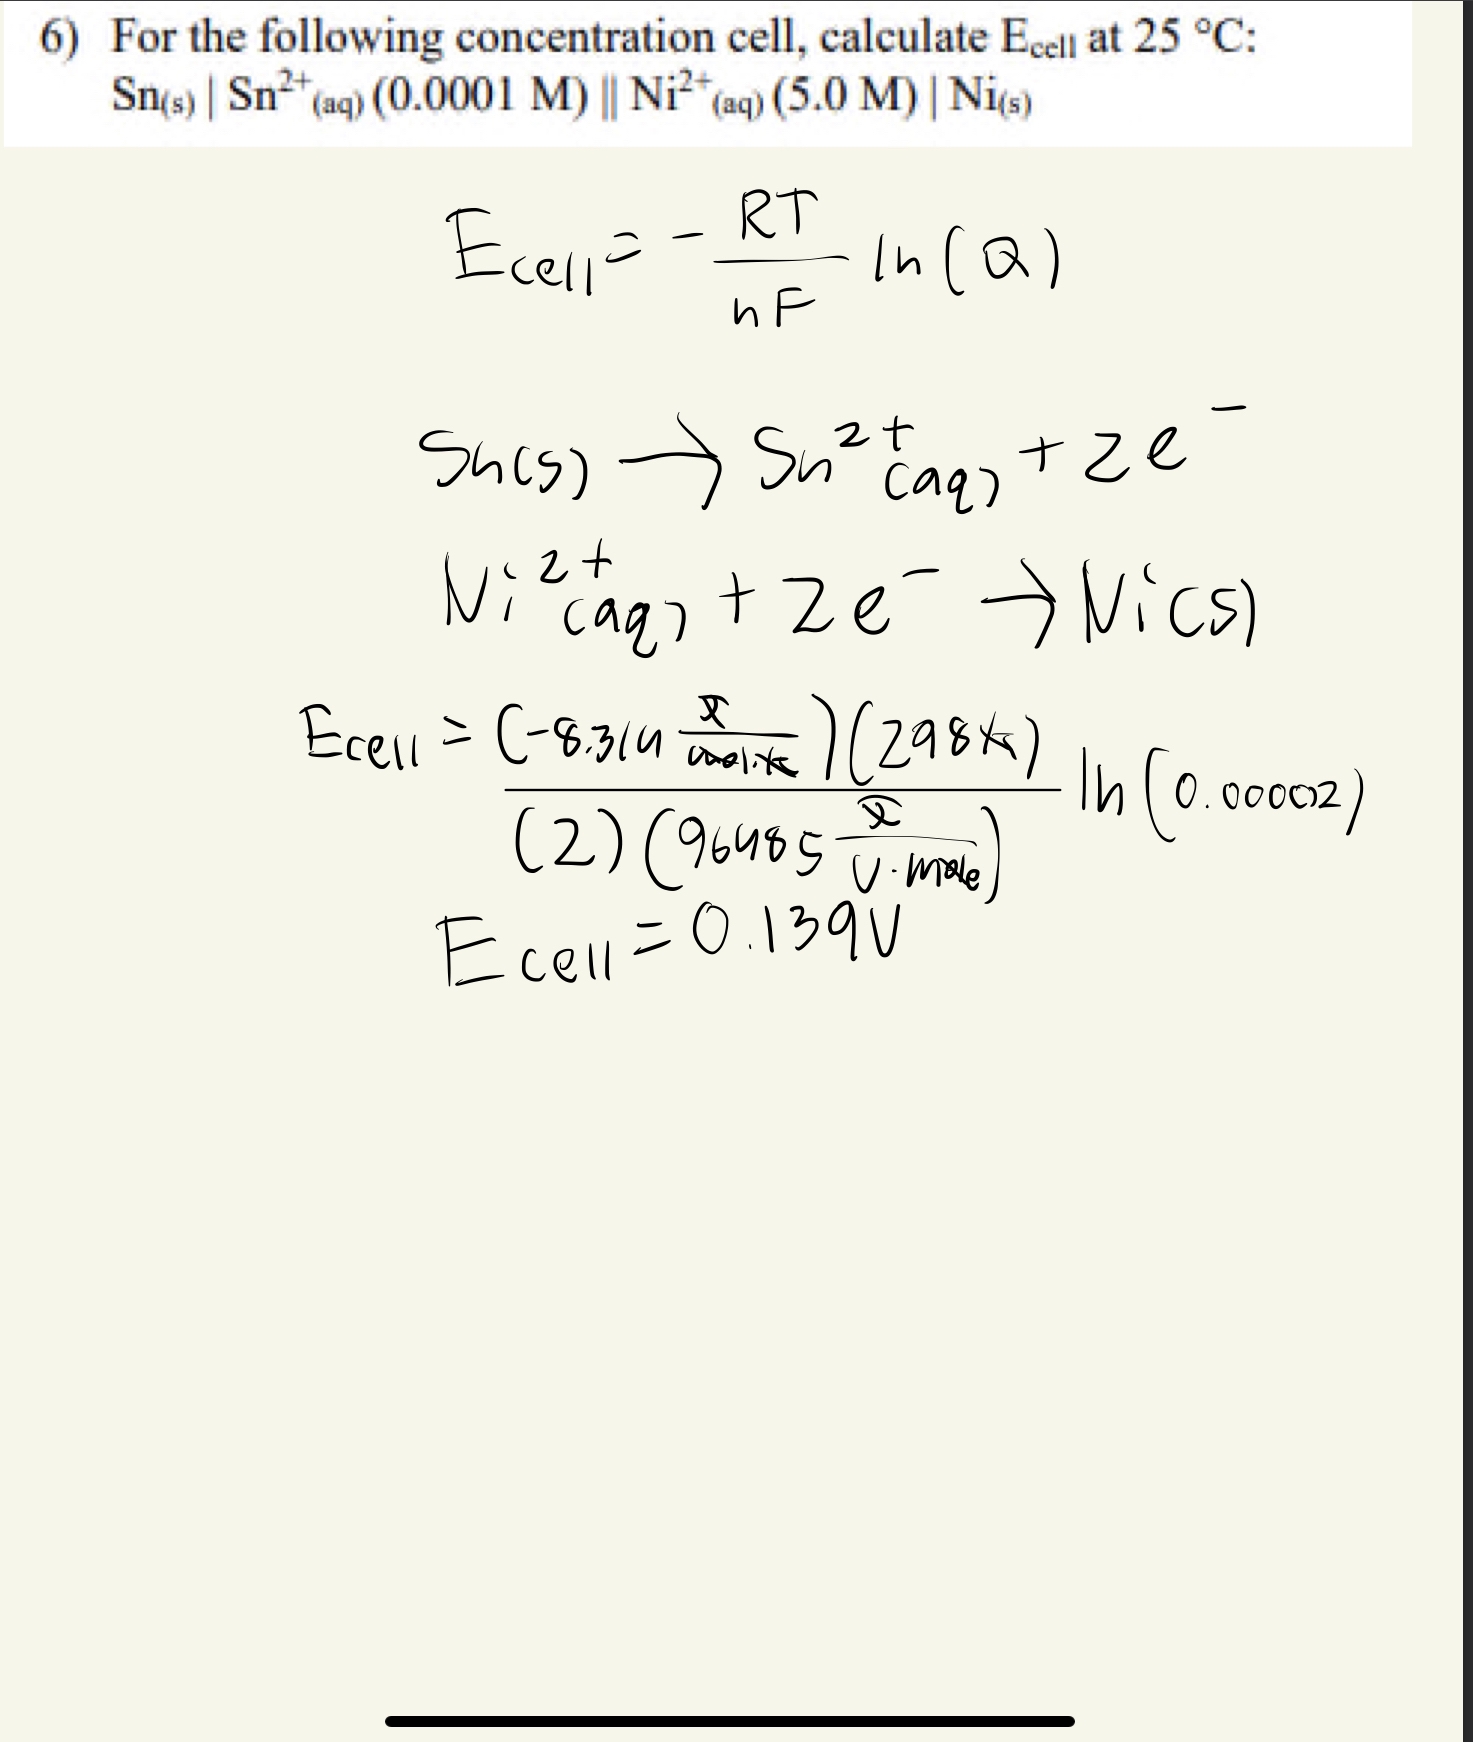 6) For the following concentration cell, calculate Ecell at 25 °C:
Sn(s) | Sn²⁺(aq) (0.0001 M) || Ni²⁺(aq) (5.0 M) | Ni(s)
Ecell = - RT / nF ln(Q)
Sn(s) → Sn²⁺(aq) + 2e⁻
Ni²⁺(aq) + 2e⁻ → Ni(s)
Ecell = (-8.314 J/mol·K)(298K) / (2)(96485 J/V·mole) ln(0.00002)
Ecell = 0.139V